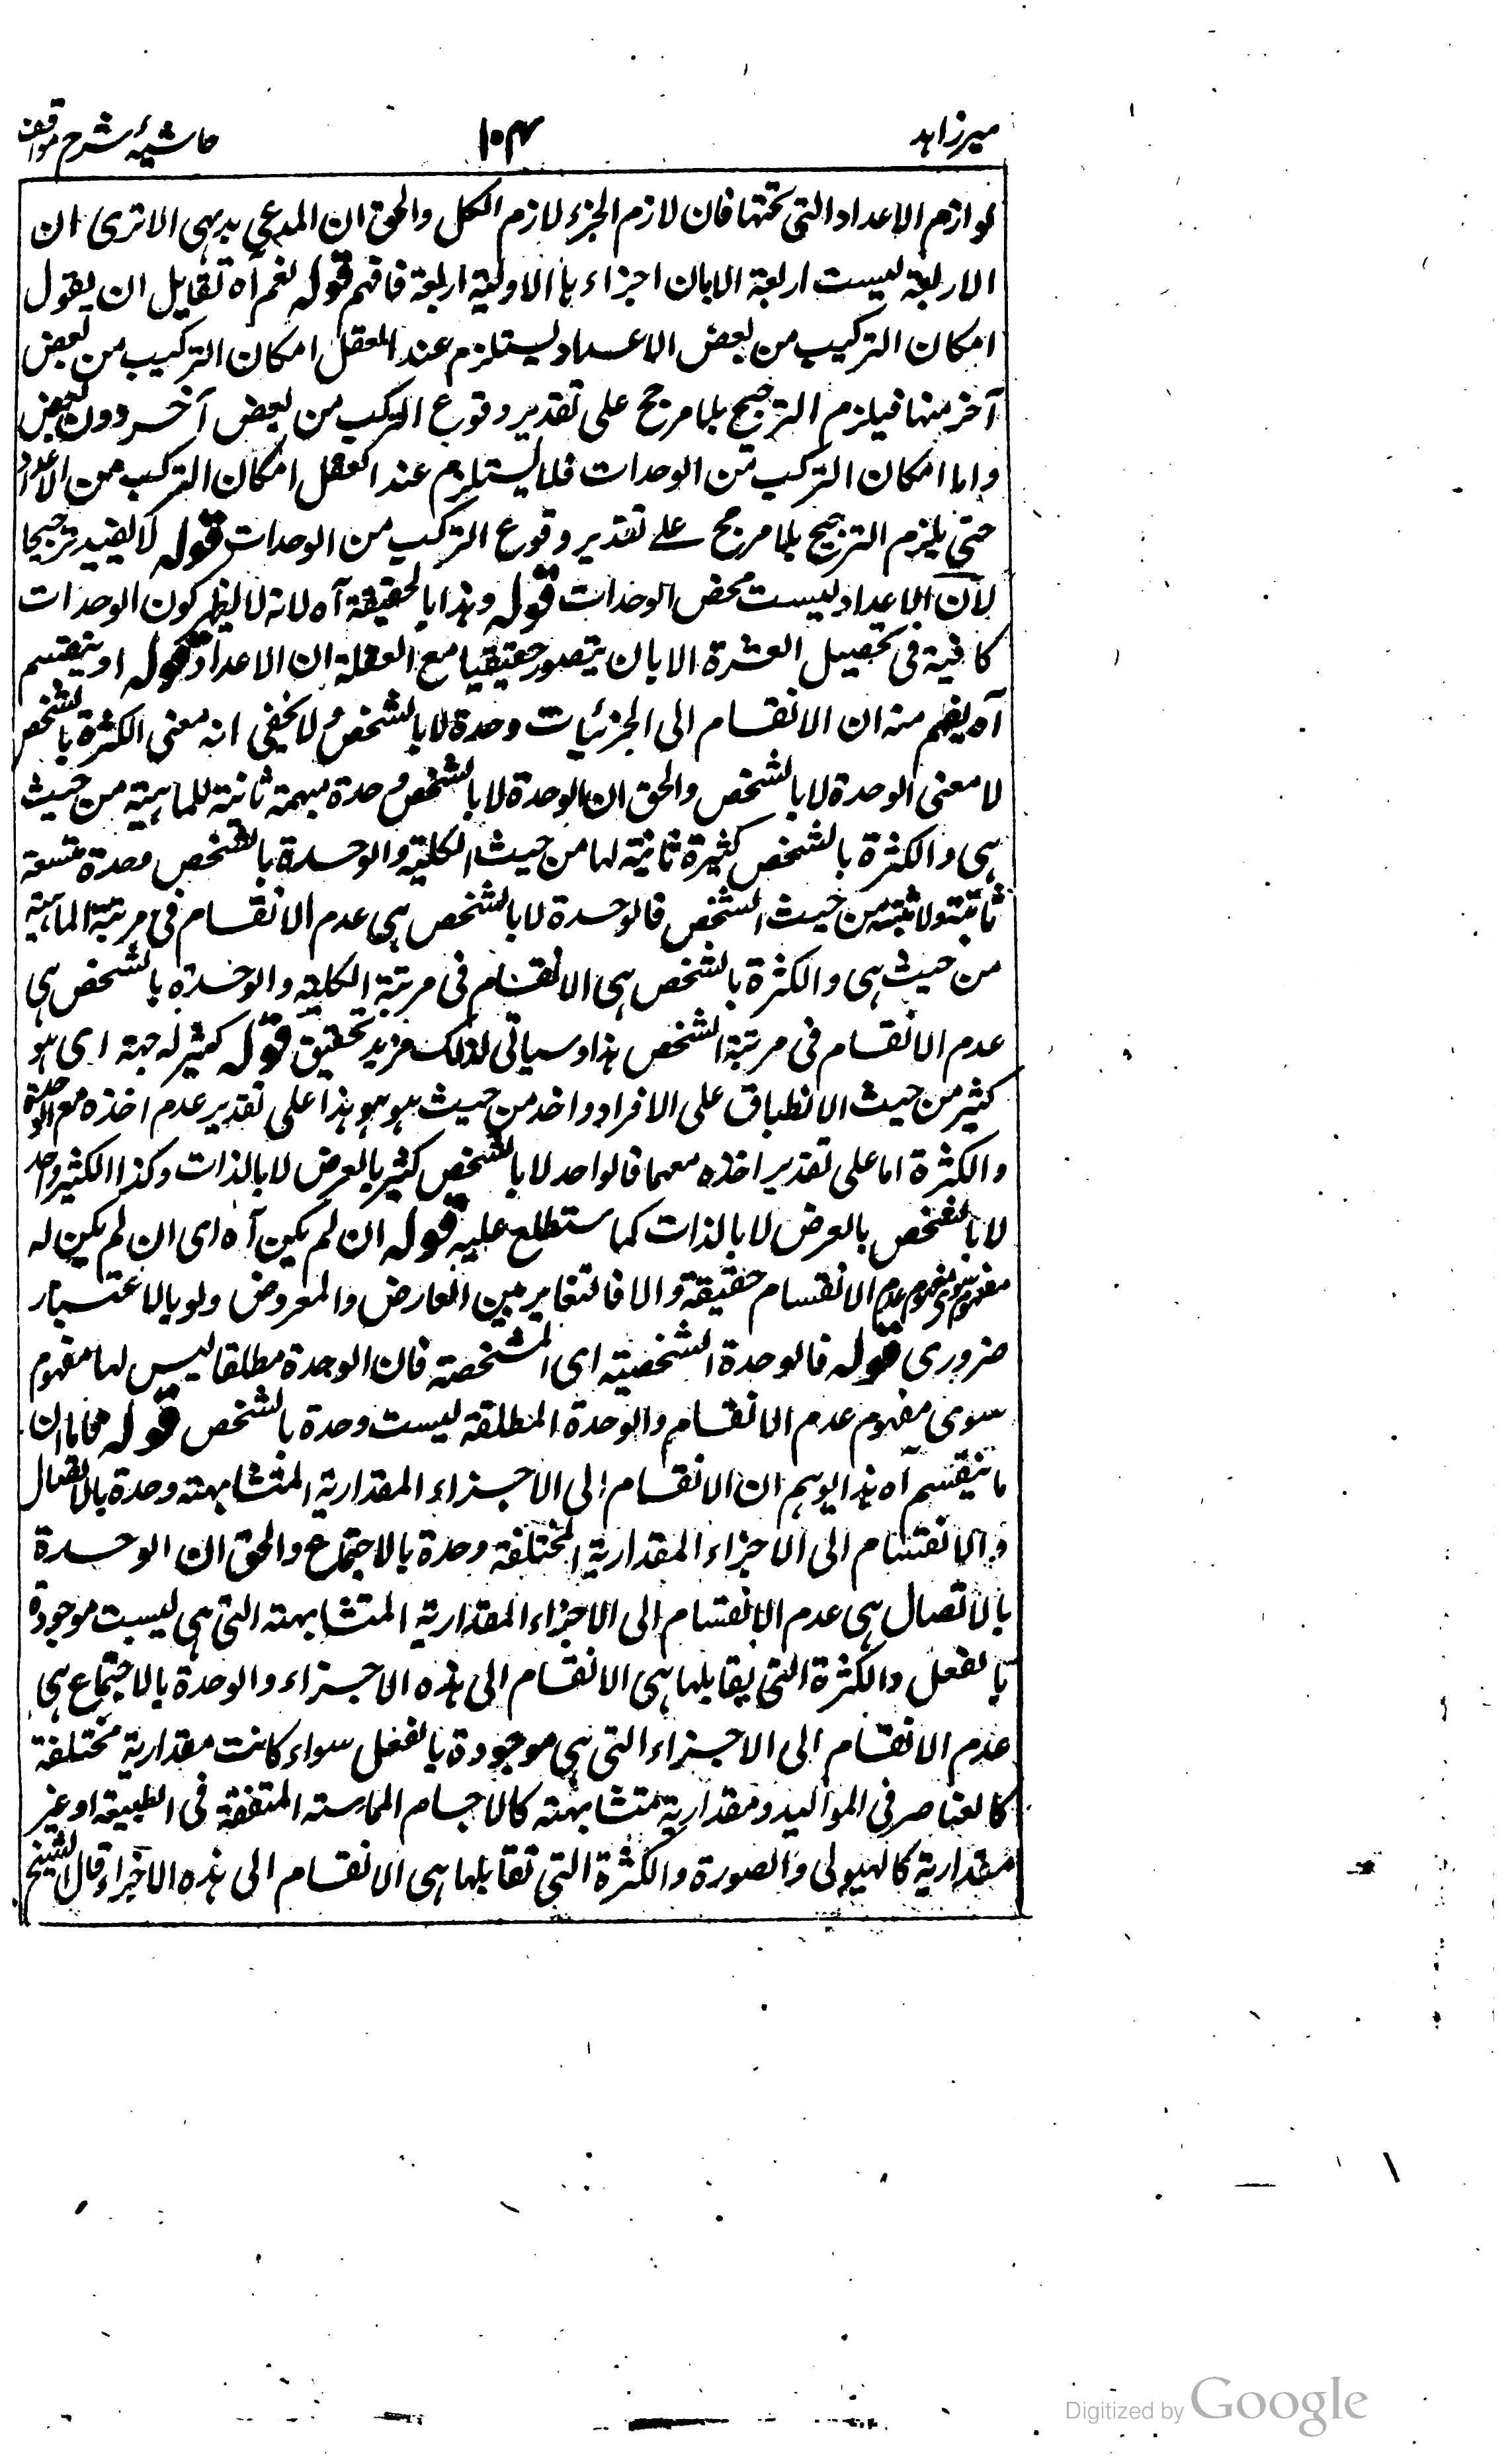 ميرزاهد
١٠٤
حاشيۂ شرح مواقف
لوازم الاعداد التى تحتها فان لازم الجزء لازم الكل والحق ان المدعى بديهى الاترى ان
الاربعة ليست اربعة الابان اجزاء بالاولية اربعة فافهم قوله نعم آه لقايل ان يقول
امكان التركيب من بعض الاعداد يستلزم عند العقل امكان التركيب من بعض
آخر منها فيلزم الترجيح بلا مرجح على تقدير وقوع التركب من بعض آخر دون بعض
واما امكان التركب من الوحدات فلا يستلزم عند العقل امكان التركب من الاعداد
حتى يلزم الترجيح بلا مرجح على تقدير وقوع التركب من الوحدات قوله لا يفيد ترجيحا
لان الاعداد ليست محض الوحدات قوله وهذا بالحقيقة آه لانه لا يظهر كون الوحدات
كافية فى تحصيل العشرة الابان يتصور حقيقيا مع الغفلة ان الاعداد قوله او ينقسم
آه يفهم منه ان الانقسام الى الجزئيات وحدة لا بالشخص ولا يخفى انه معنى الكثرة بالشخص
لا معنى الوحدة لا بالشخص والحق ان الوحدة لا بالشخص وحدة مبهمة ثانية للماهية من حيث
هى والكثرة بالشخص كثيرة ثانية لها من حيث الكلية والوحدة بالشخص وحدة
من حيث الشخص فالوحدة لا بالشخص هى عدم الانقسام فى مرتبة الماهية
من حيث هى والكثرة بالشخص هى الانقسام فى مرتبة الكلية والوحدة بالشخص هى
عدم الانقسام فى مرتبة الشخص هذا وسياتى لذلك مزيد تحقيق قوله كثير له جهة اى هو
كثير من حيث الانطباق على الافراد واحد من حيث هو هو هذا على تقدير عدم اخذه مع الوحدة
والكثرة اما على تقدير اخذه معهما فالواحد لا بالشخص كثير بالعرض لا بالذات وكذا الكثير واحد
لا بالشخص بالعرض لا بالذات كما ستطلع عليه قوله ان لم يكن آه اى ان لم يكن له
مفهوم سوى مفهوم عدم الانقسام حقيقة والا فالتغاير بين العارض والمعروض ولو بالاعتبار
ضرورى قوله فالوحدة الشخصية اى المشخصة فان الوحدة مطلقا ليس لها مفهوم
سوى مفهوم عدم الانقسام والوحدة المطلقة ليست وحدة بالشخص قوله فاما ان
ما ينقسم آه هذا يوهم ان الانقسام الى الاجزاء المقدارية المتشابهة وحدة بالاتصال
والانقسام الى الاجزاء المقدارية المختلفة وحدة بالاجتماع والحق ان الوحدة
بالاتصال هى عدم الانقسام الى الاجزاء المقدارية المتشابهة التى هى ليست موجودة
بالفعل والكثرة التى يقابلها هى الانقسام الى هذه الاجزاء والوحدة بالاجتماع هى
عدم الانقسام الى الاجزاء التى هى موجودة بالفعل سواء كانت مقدارية مختلفة
كالعناصر فى المواليد ومقدارية متشابهة كالاجسام المماسته المتفقة فى الطبيعة او غير
مقدارية كالهيولى والصورة والكثرة التى تقابلها هى الانقسام الى هذه الاجزاء قال الشيخ
Digitized by Google